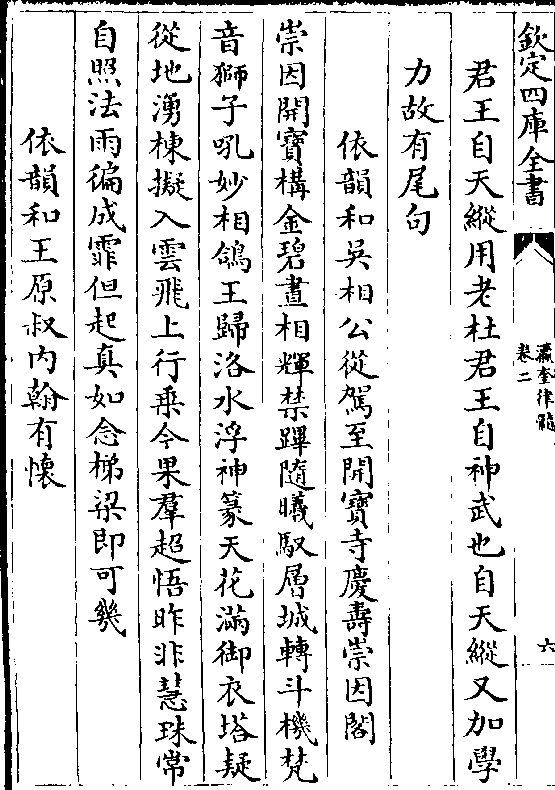 欽定四庫全書
瀛奎律髓
卷二
六
君王自天縱用老杜君王自神武也自天縱又加學
力故有尾句
依韻和吳相公從駕至開寶寺慶壽崇因閣
崇因開寶構金碧晝相輝禁蹕隨曦馭層城轉斗機梵
音獅子吼妙相鴿王歸洛水浮神篆天花滿御衣塔疑
從地湧棟擬入雲飛上行乘今果羣超悟昨非慧珠常
自照法雨徧成霏但起真如念梯梁即可幾
依韻和王原叔内翰有懷